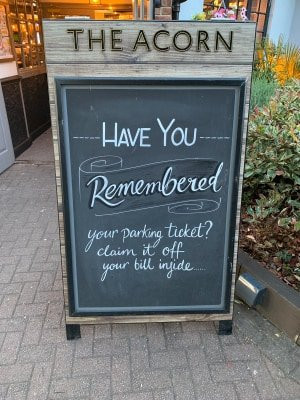 THE ACORN
HAVE YOU
Remembered
your parking ticket?
claim it off
your bill inside.....